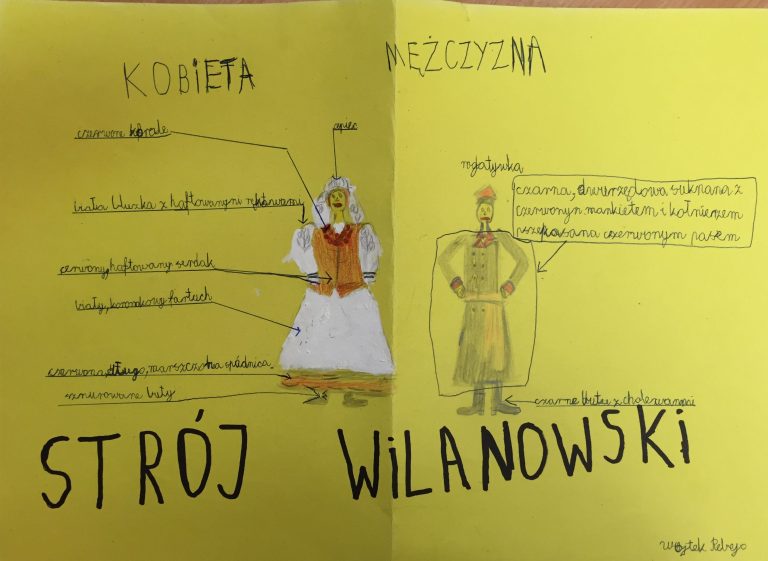 KOBIETA
MĘŻCZYZNA
czerwone korale
czepiec
biała bluzka z haftowanymi rękawami
czerwony, haftowany serdak
biały, koronkowy fartuch
czerwona, długa, marszczona spódnica
sznurowane buty
rogatywka
czarna, dwurzędowa sukmana z
czerwonym mankietem i kołnierzem
przepasana czerwonym pasem
czarne buty z cholewami
STRÓJ WILANOWSKI
Wojtek